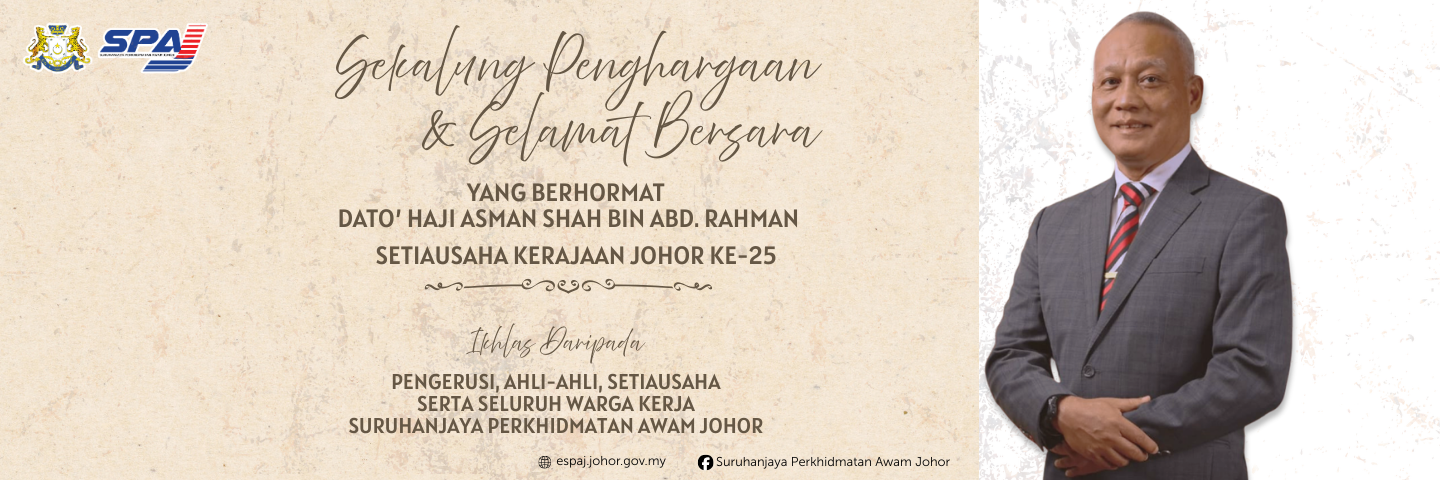 SPAJ
Sekalung Penghargaan
& Selamat Bersara
YANG BERHORMAT
DATO' HAJI ASMAN SHAH BIN ABD. RAHMAN
SETIAUSAHA KERAJAAN JOHOR KE-25
Ikhlas Daripada
PENGERUSI, AHLI-AHLI, SETIAUSAHA
SERTA SELURUH WARGA KERJA
SURUHANJAYA PERKHIDMATAN AWAM JOHOR
espaj.johor.gov.my
Suruhanjaya Perkhidmatan Awam Johor